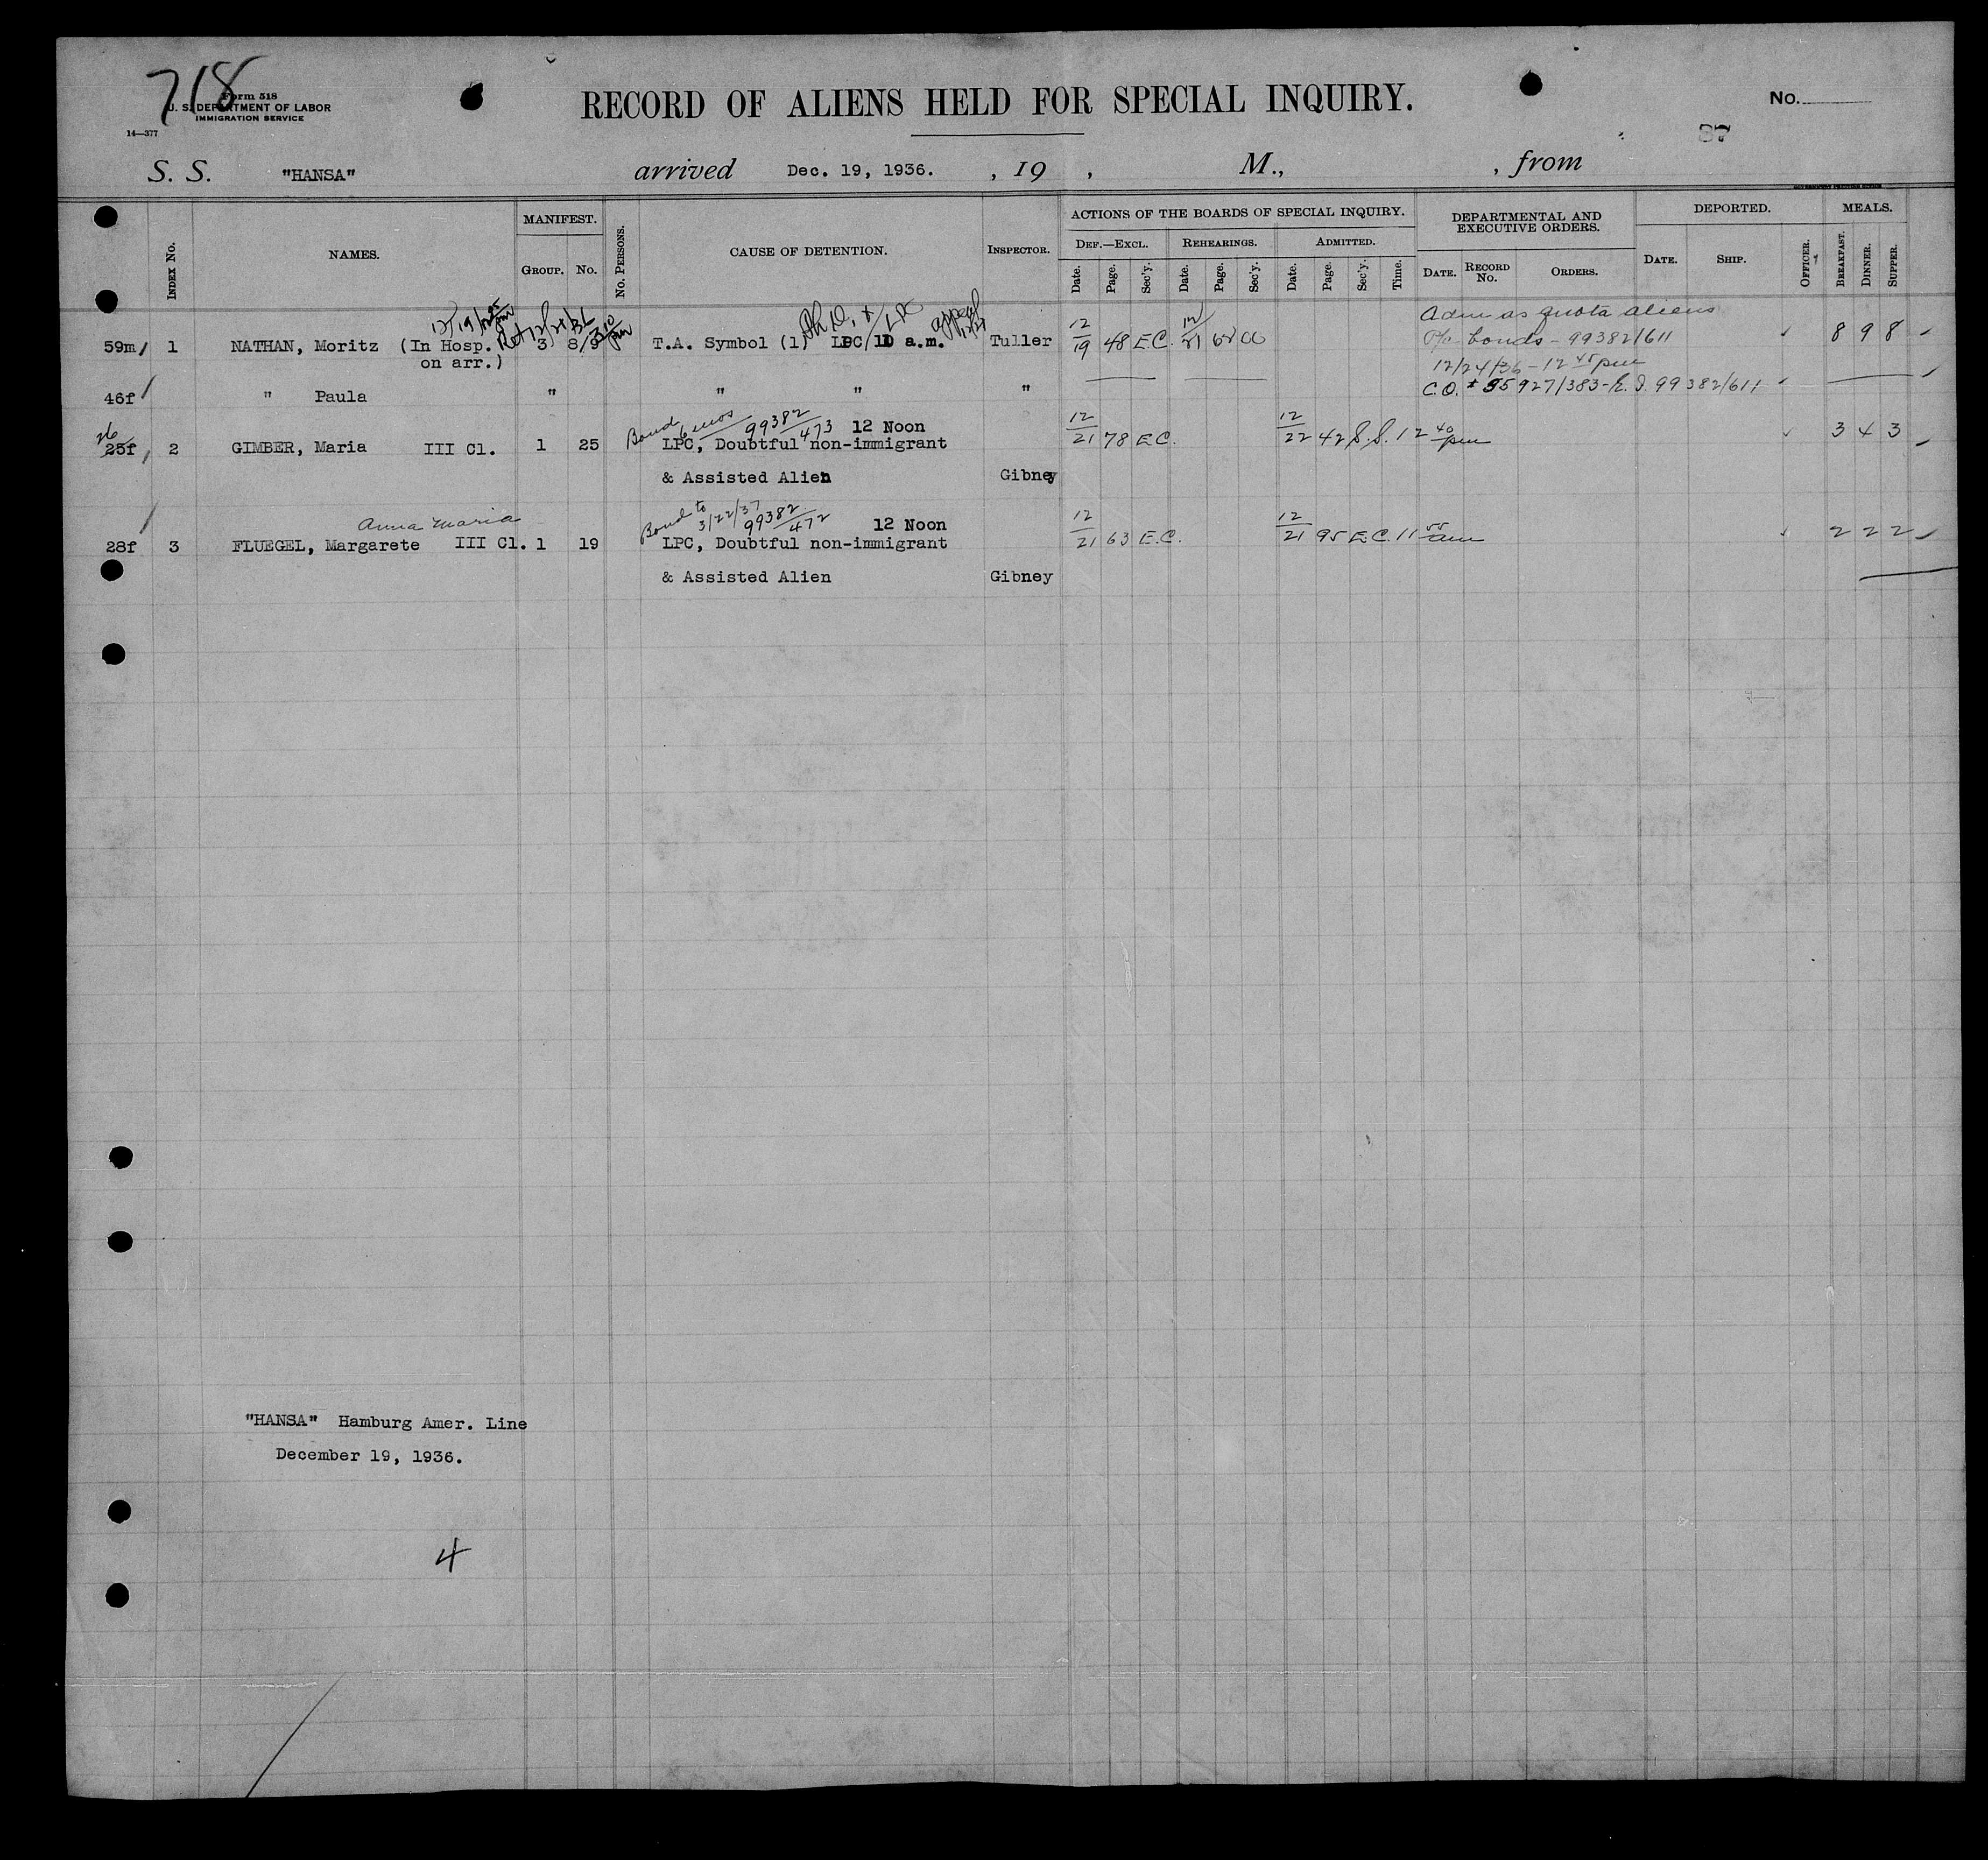 718
Form 518
U. S. DEPARTMENT OF LABOR
IMMIGRATION SERVICE
14—377
RECORD OF ALIENS HELD FOR SPECIAL INQUIRY.
No.
37
S. S. "HANSA" arrived Dec. 19, 1936. , 19 , M., , from
INDEX No. NAMES. MANIFEST. GROUP. No. No. PERSONS. CAUSE OF DETENTION. INSPECTOR.
ACTIONS OF THE BOARDS OF SPECIAL INQUIRY. DEPARTMENTAL AND EXECUTIVE ORDERS. DEPORTED. MEALS.
DEF.—EXCL. REHEARINGS. ADMITTED.
Date. Page. Sec'y. Date. Page. Sec'y. Date. Page. Sec'y. Time. DATE. RECORD No. ORDERS. DATE. SHIP. OFFICER. BREAKFAST. DINNER. SUPPER.
12/19 Ret 12/21/36 3 10 pm appeal 12/21 Adm as quota aliens
59m 1 NATHAN, Moritz (In Hosp. 3 8/9 T.A. Symbol (1) LPC 10 a.m. Tuller 12/19 48 E.C. 12/21 bonds - 99382/611 8 9 8
on arr.) 12/24/36 - 12 45 pm
46f " Paula " " " " C.O. # 95927/383 - E.I. 99382/611
26 Bond 6 mos 99382/473 12 Noon
25f 2 GIMBER, Maria III Cl. 1 25 LPC, Doubtful non-immigrant 12/21 78 E.C. 12/22 42 S.S. 12 40 pm 3 4 3
& Assisted Alien Gibney
Anna Maria Bond to 3/22/37 99382/472 12 Noon
28f 3 FLUEGEL, Margarete III Cl. 1 19 LPC, Doubtful non-immigrant 12/21 63 E.C. 12/21 95 E.C. 11 55 am 2 2 2
& Assisted Alien Gibney
"HANSA" Hamburg Amer. Line
December 19, 1936.
4